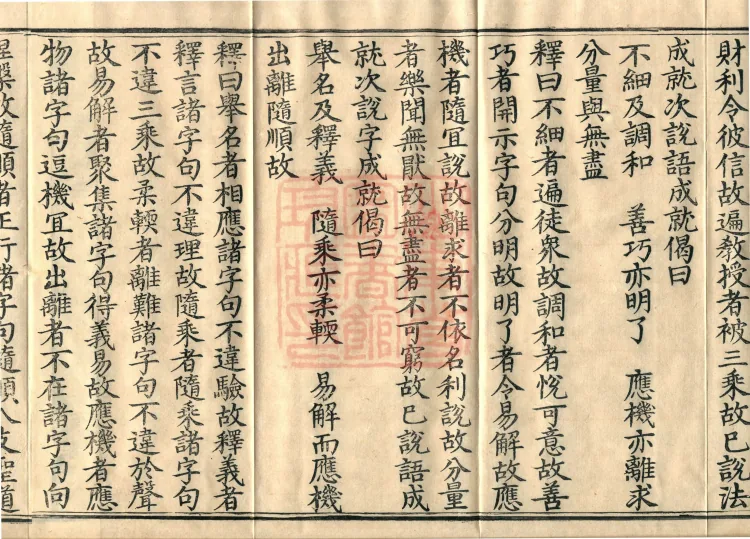 財利令彼信故遍教授者被三乘故已說法
成就次說語成就偈曰
不細及調和　善巧亦明了　應機亦離求
分量與無盡
釋曰不細者遍徒衆故調和者悅可意故善
巧者開示字句分明故明了者令易解故應
機者隨冝說故離求者不依名利說故分量
者樂聞無猒故無盡者不可窮故已說語成
就次說字成就偈曰
舉名及釋義　隨乘亦柔輭　易解而應機
出離隨順故
釋曰舉名者相應諸字句不違驗故釋義者
釋言諸字句不違理故隨乘者隨乘諸字句
不違三乘故柔輭者離難諸字句不違於聲
故易解者聚集諸字句得義易故應機者應
物諸字句逗機冝故出離者不在諸字句向
涅槃故隨順者正行諸字句隨順八支聖道